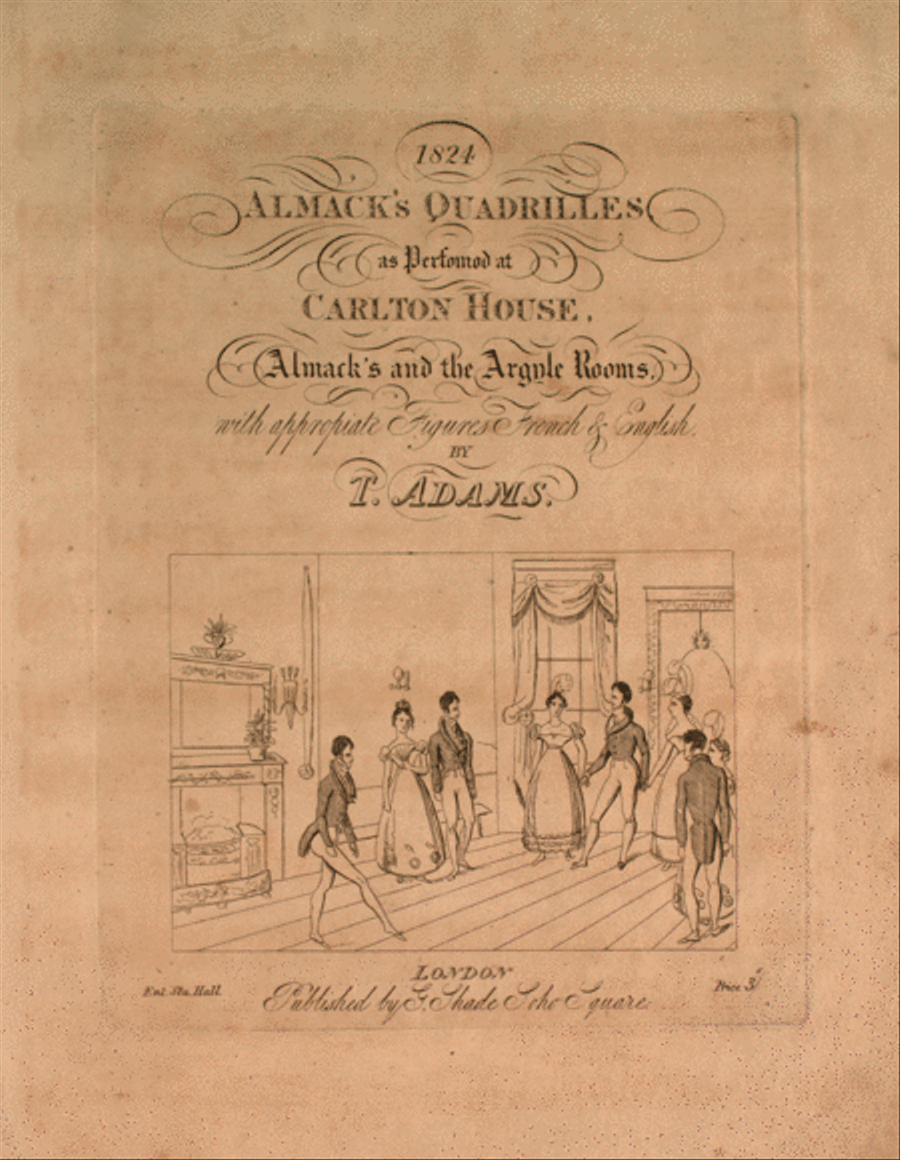 1824
ALMACK'S QUADRILLES
as Perfomod at
CARLTON HOUSE.
Almack's and the Argyle Rooms.
with appropiate Figures French & English.
BY
T. ADAMS.
LONDON
Ent. Sta. Hall.
Published by G. Shade Soho Square.
Price 3/